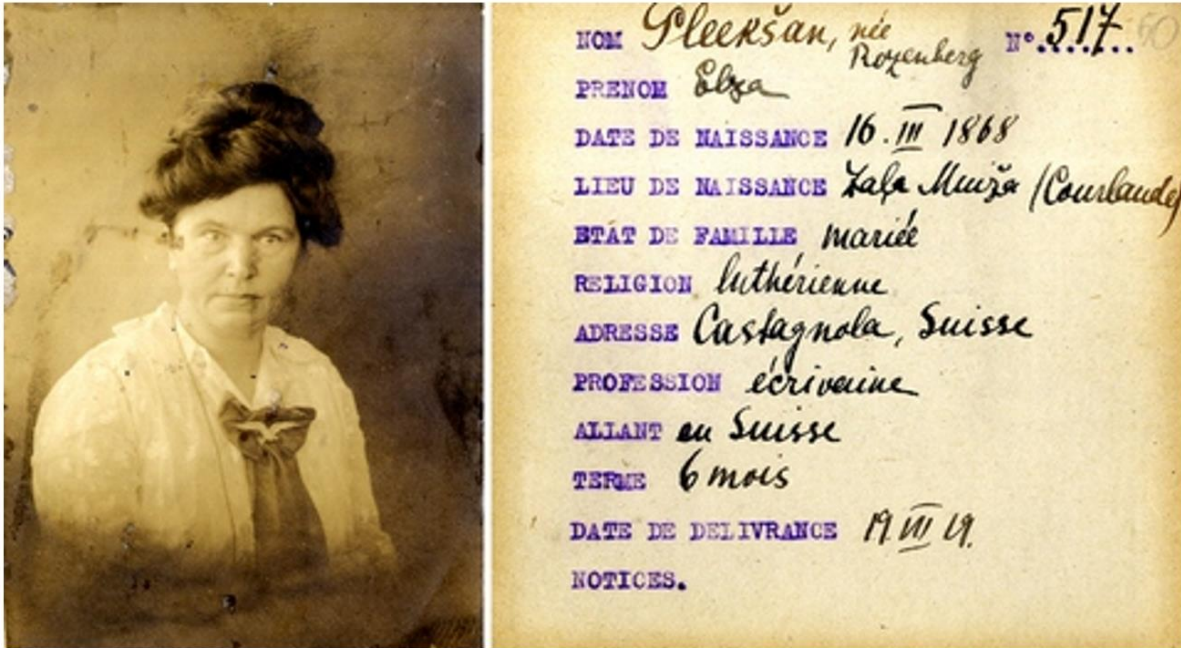 NOM Pleekšan, née Rozenberg N° 517 50
PRENOM Elza
DATE DE NAISSANCE 16.III 1868
LIEU DE NAISSANCE Zaļa Muiža (Courlande)
ETAT DE FAMILLE mariée
RELIGION luthérienne
ADRESSE Castagnola, Suisse
PROFESSION écrivaine
ALLANT en Suisse
TERME 6 mois
DATE DE DELIVRANCE 19.III 19.
NOTICES.